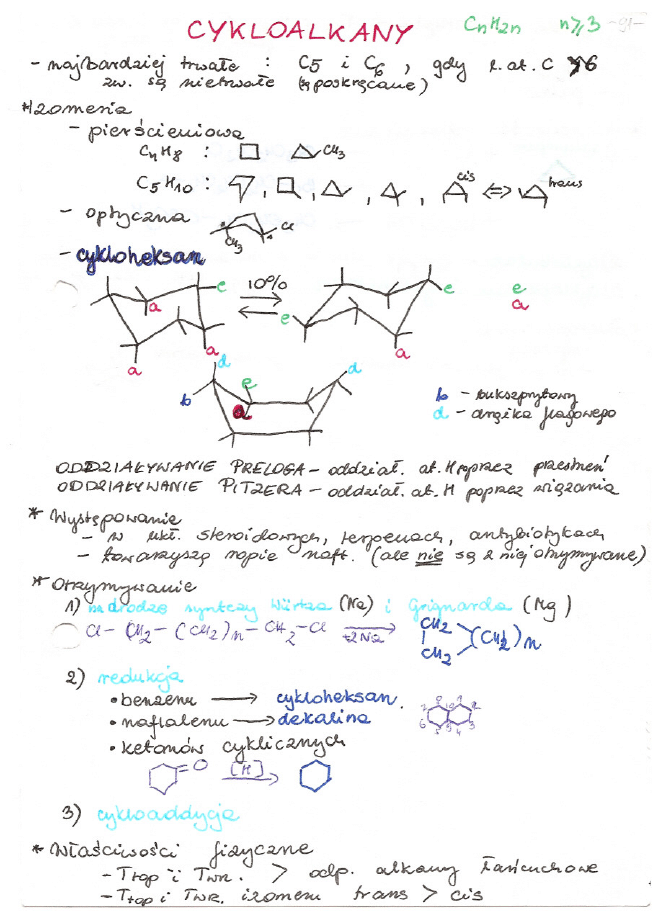 CYKLOALKANY CnH2n n≥3 -91-
- najbardziej trwałe : C5 i C6, gdy l. at. C >6
zw. są nietrwałe (poskręcane)
*Izomeria
- pierścieniowa
CnH8 : CH3
C5H10 : , , , , cis ⇔ trans
- optyczna CH3 Cl
- cykloheksan
10%
e e e
a e a
a a a
d d
b e
a
b - bukszprytowy
d - drążka flagowego
ODDZIAŁYWANIE PRELOGA - oddział. at. H poprzez przestrzeń
ODDZIAŁYWANIE PITZERA - oddział. at. H poprzez wiązania
* Występowanie
- w ukł. steroidowych, terpenach, antybiotykach
- towarzyszą ropie naft. (ale nie są z niej otrzymywane)
* Otrzymywanie
1) na drodze syntezy Würtza (Na) i Grignarda (Mg)
Cl - CH2 - (CH2)n - CH2 - Cl +2Na → CH2 CH2 (CH2)n
2) redukcja
• benzenu → cykloheksan
• naftalenu → dekalina
8 9 1 2 3 4 10 5 6 7
• ketonów cyklicznych
=O [H] →
3) cykloaddycja
* Właściwości fizyczne
- Ttop i Twr. > odp. alkany łańcuchowe
- Ttop i Twr. izomeru trans > cis